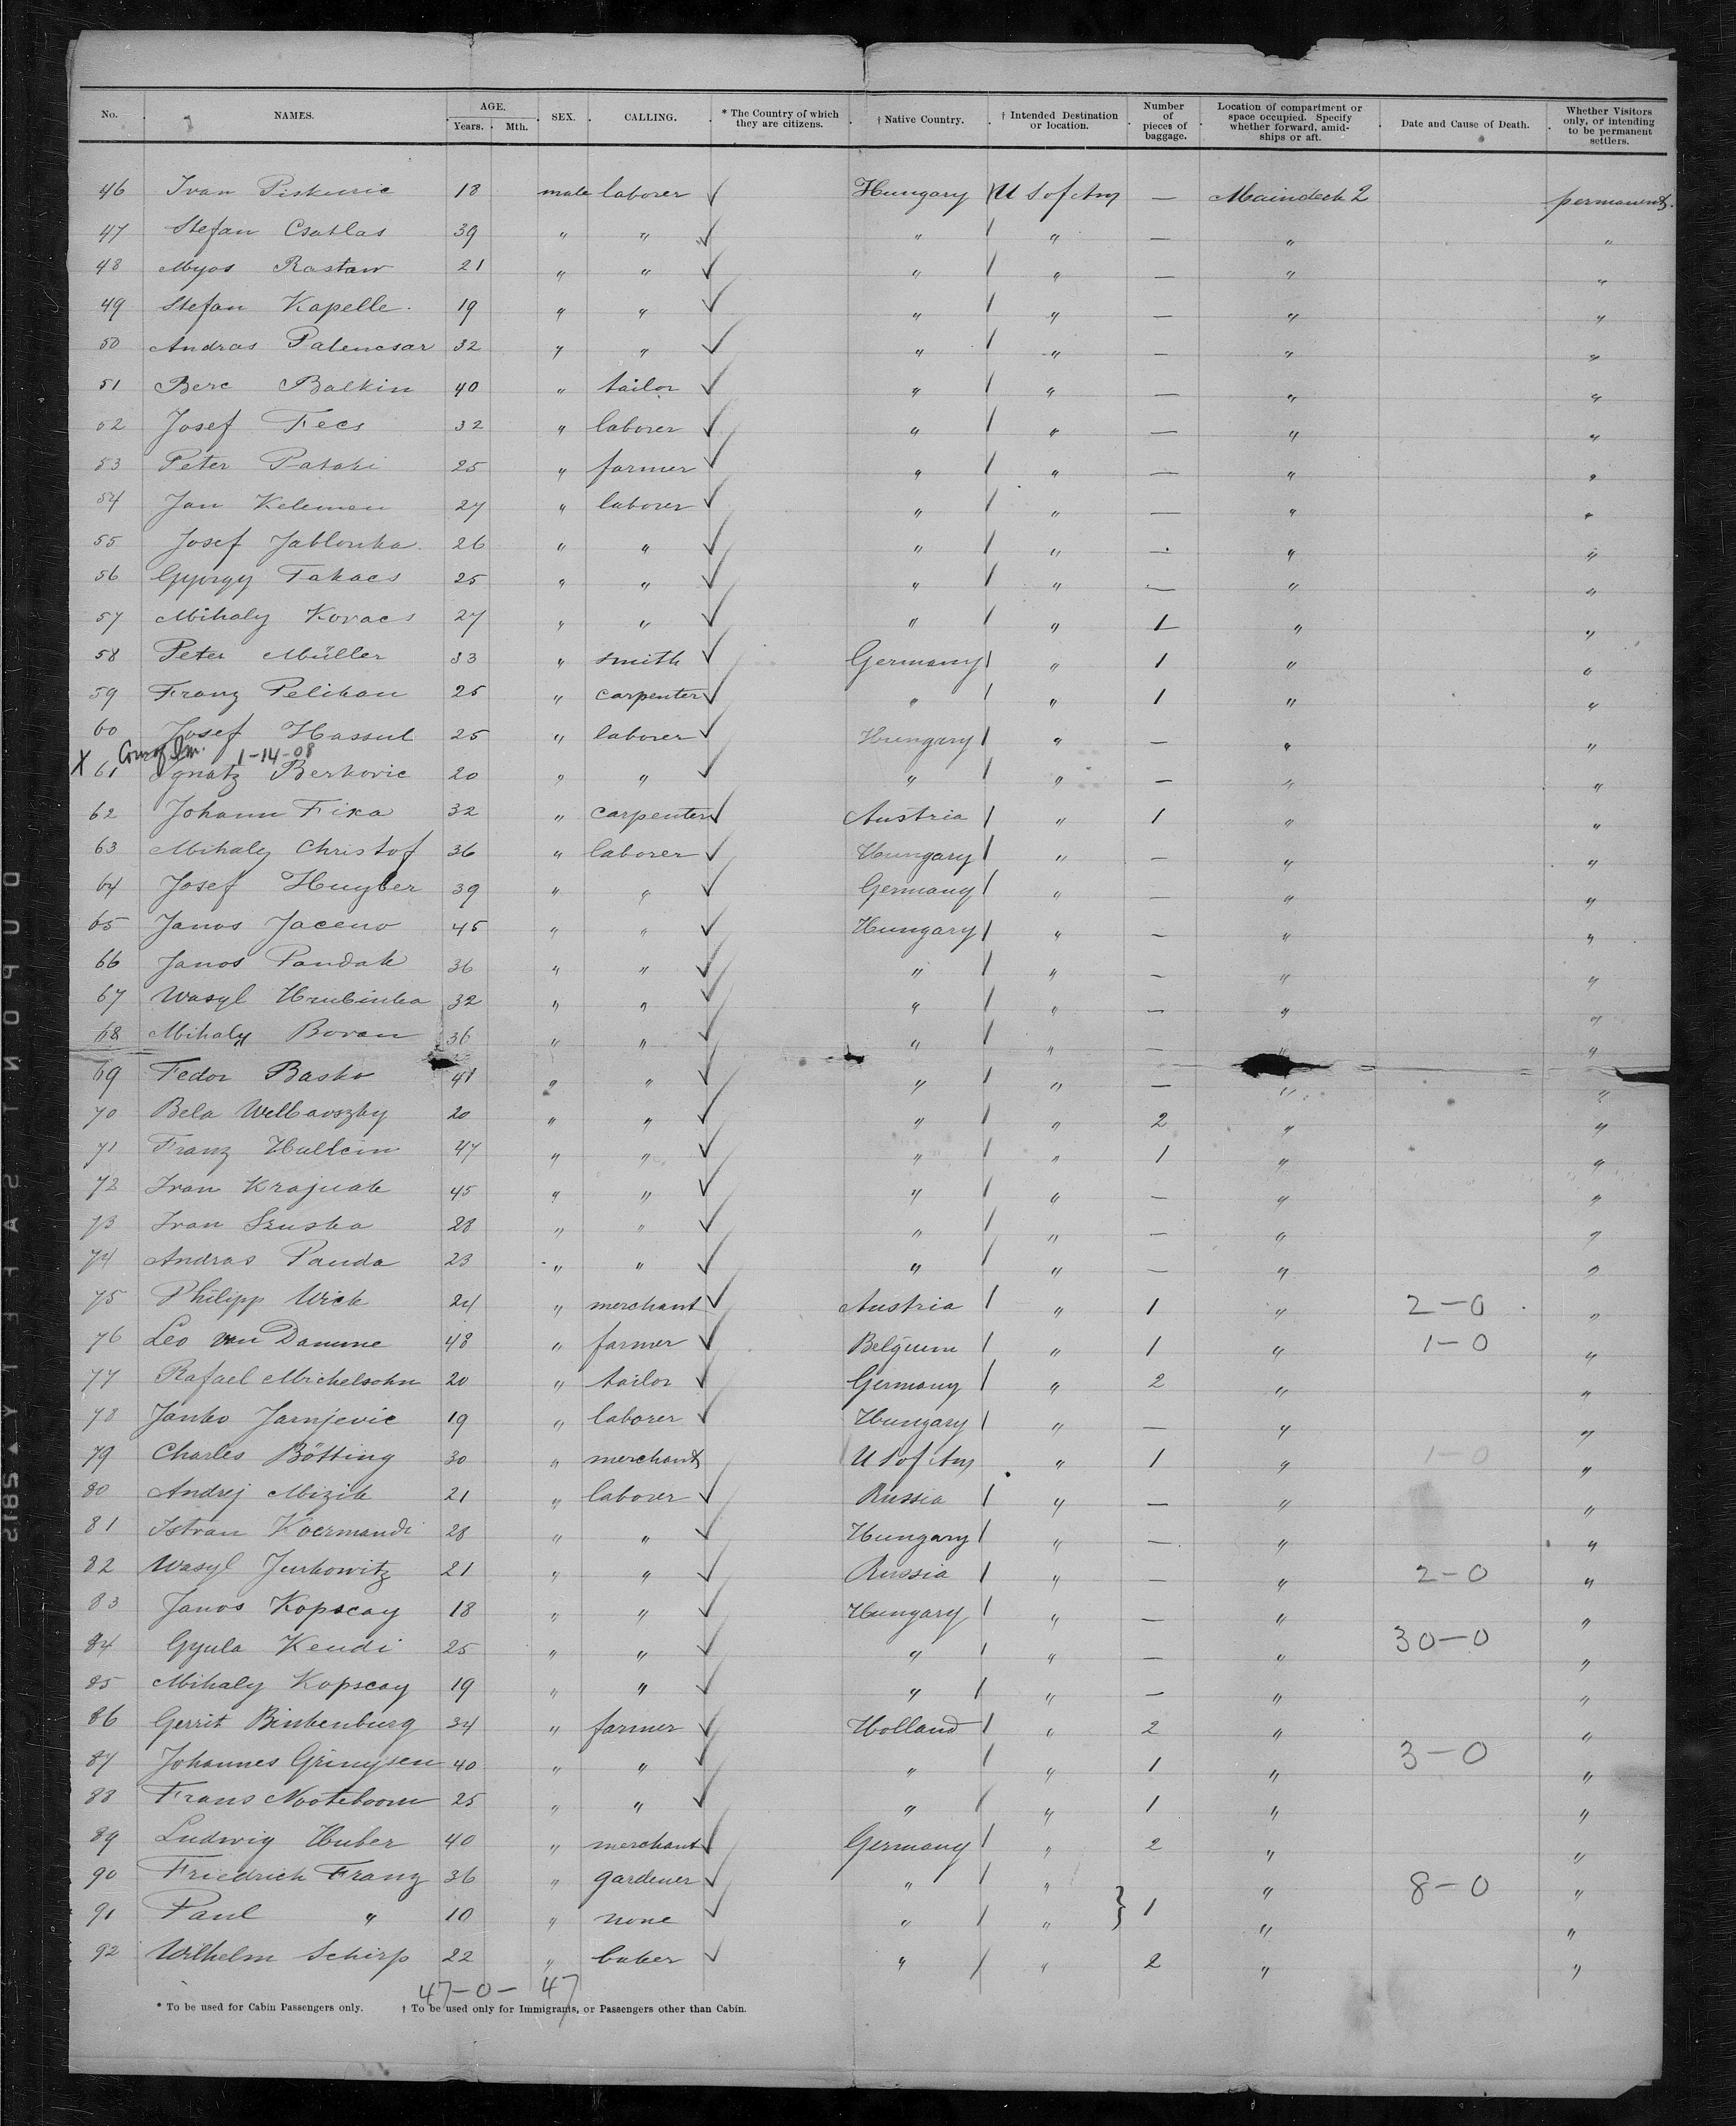 No. NAMES. AGE. Years. Mth. SEX. CALLING. * The Country of which they are citizens. † Native Country. † Intended Destination or location. Number of pieces of baggage. Location of compartment or space occupied. Specify whether forward, amid-ships or aft. Date and Cause of Death. Whether Visitors only, or intending to be permanent settlers.
46 Ivan Piskuric 18 male laborer ✓ Hungary / U S of Am — Maindeck 2 permanent.
47 Stefan Csatlas 39 " " ✓ " / " — " "
48 Myos Rastaw 21 " " ✓ " / " — " "
49 Stefan Kapelle. 19 " " ✓ " / " — " "
50 Andras Palencsar 32 " " ✓ " / " — " "
51 Berc Balkin 40 " tailor ✓ " / " — " "
52 Josef Fecs 32 " laborer ✓ " / " — " "
53 Peter Pataki 25 " farmer ✓ " / " — " "
54 Jan Kelemen 27 " laborer ✓ " / " — " "
55 Josef Jablonka 26 " " ✓ " / " — " "
56 Gyorgy Takacs 25 " " ✓ " / " — " "
57 Mihaly Kovacs 27 " " ✓ " / " 1 " "
58 Peter Müller 33 " smith ✓ Germany / " 1 " "
59 Franz Pelikan 25 " carpenter ✓ " / " 1 " "
60 Josef Hassul 25 " laborer ✓ Hungary / " — " "
X 1-14-08
61 Ignatz Berkovic 20 " " ✓ " / " — " "
62 Johann Fixa 32 " carpenter ✓ Austria / " 1 " "
63 Mihaly Christof 36 " laborer ✓ Hungary / " — " "
64 Josef Huyber 39 " " ✓ Germany / " — " "
65 Janos Jaceno 45 " " ✓ Hungary / " — " "
66 Janos Pandak 36 " " ✓ " / " — " "
67 Wasyl Hrubinka 32 " " ✓ " / " — " "
68 Mihaly Boran 36 " " ✓ " / " — " "
69 Fedor Basko 41 " " ✓ " / " — " "
70 Bela 20 " " ✓ " / " 2 " "
71 Franz Hullein 47 " " ✓ " / " 1 " "
72 Ivan Krajnak 45 " " ✓ " / " — " "
73 Ivan Szuska 28 " " ✓ " / " — " "
74 Andras Panda 23 " " ✓ " / " — " "
75 Philipp Wick 24 " merchant ✓ Austria / " 1 " 2-0 "
76 Leo van Damme 48 " farmer ✓ Belgium / " 1 " 1-0 "
77 Rafael Michelsohn 20 " tailor ✓ Germany / " 2 " "
78 Janko Jarnjevic 19 " laborer ✓ Hungary / " — " "
79 Charles Bötting 30 " merchant U S of Am " 1 " 1-0 "
80 Andrej Mizik 21 " laborer ✓ Russia / " — " "
81 Istvan Koermandi 28 " " ✓ Hungary / " — " "
82 Wasyl Jurkowitz 21 " " ✓ Russia / " — " 2-0 "
83 Janos Kopscay 18 " " ✓ Hungary / " — " "
84 Gyula Kendi 25 " " ✓ " / " — " 30-0 "
85 Mihaly Kopscay 19 " " ✓ " / " — " "
86 Gerrit Binkenburg 34 " farmer ✓ Holland / " 2 " "
87 Johannes Grinysen 40 " " ✓ " / " 1 " 3-0 "
88 Frans Nooteboom 25 " " ✓ " / " 1 " "
89 Ludwig Huber 40 " merchant ✓ Germany / " 2 " "
90 Friedrich Franz 36 " gardener ✓ " / " " 8-0 "
91 Paul " 10 " none ✓ " / " } 1 " "
92 Wilhelm Schirp 22 " baker ✓ " / " 2 " "
47-0-47
* To be used for Cabin Passengers only. † To be used only for Immigrants, or Passengers other than Cabin.